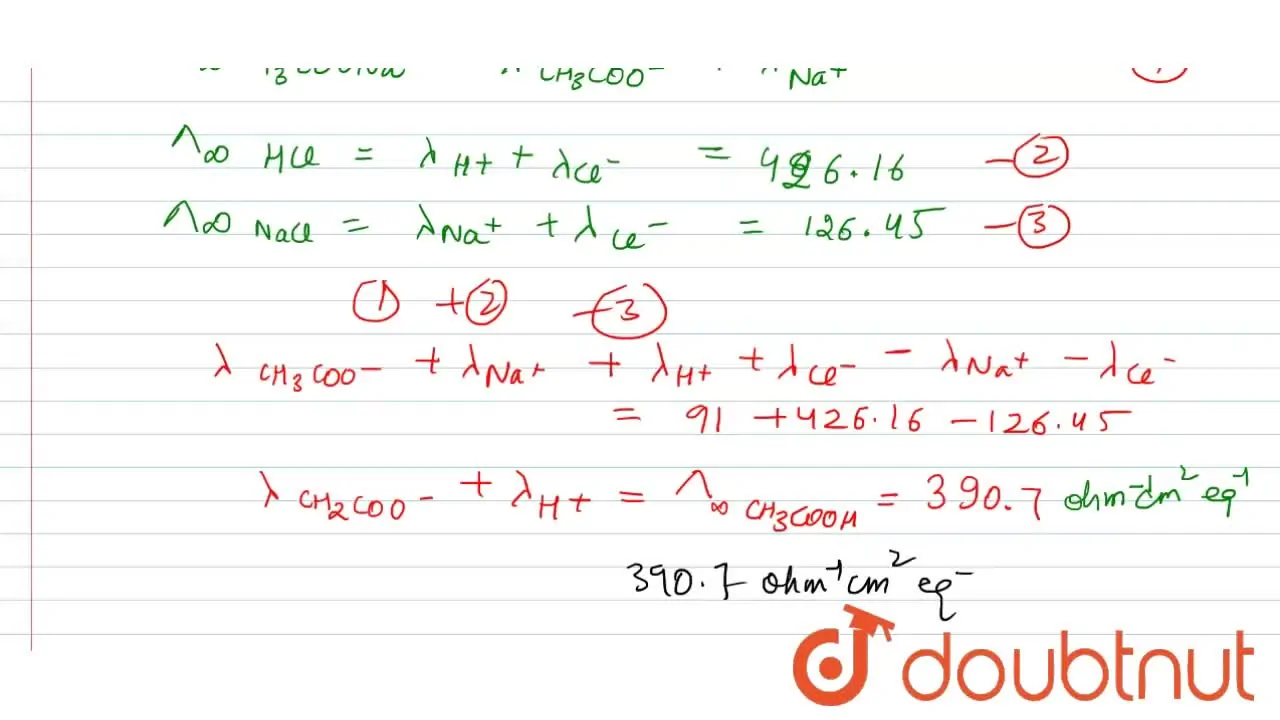 CH₃COO⁻ Na⁺
Λ∞ HCl = λ H+ + λ Cl⁻ = 426.16 –②
Λ∞ NaCl = λ Na⁺ + λ Cl⁻ = 126.45 –③
① +② –③
λ CH₃COO– + λ Na+ + λ H+ + λ Cl⁻ – λ Na+ – λ Cl⁻
= 91 +426.16 –126.45
λ CH₂COO– + λ H+ = Λ∞ CH₃COOH = 390.7 ohm⁻¹cm² eq⁻¹
390.7 ohm⁻¹cm² eq⁻
doubtnut